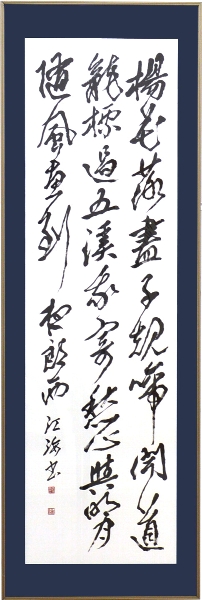 楊花落盡子規啼聞道
龍標過五溪我寄愁心與明月
隨風直到夜郎西